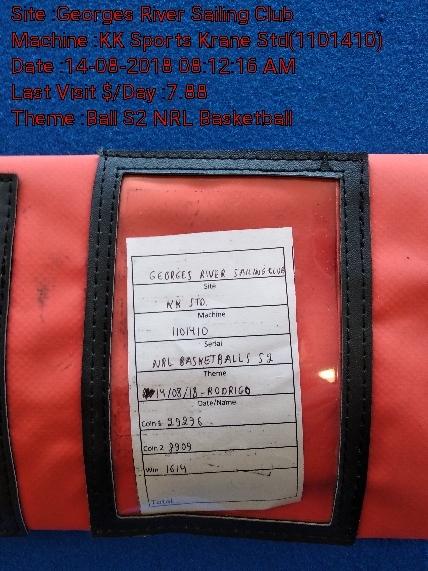 Site :Georges River Sailing Club
Machine :KK Sports Krane Std(1101410)
Date :14-08-2018 08:12:16 AM
Last Visit $/Day :7.88
Theme :Ball S2 NRL Basketball
GEORGES RIVER SAILING CLUB
Site
KK STD.
Machine
1101410
Serial
NRL BASKETBALLS S2
Theme
14/08/18-RODRIGO
Date/Name
Coin 1 29296
Coin 2 3909
Win 1614
Total